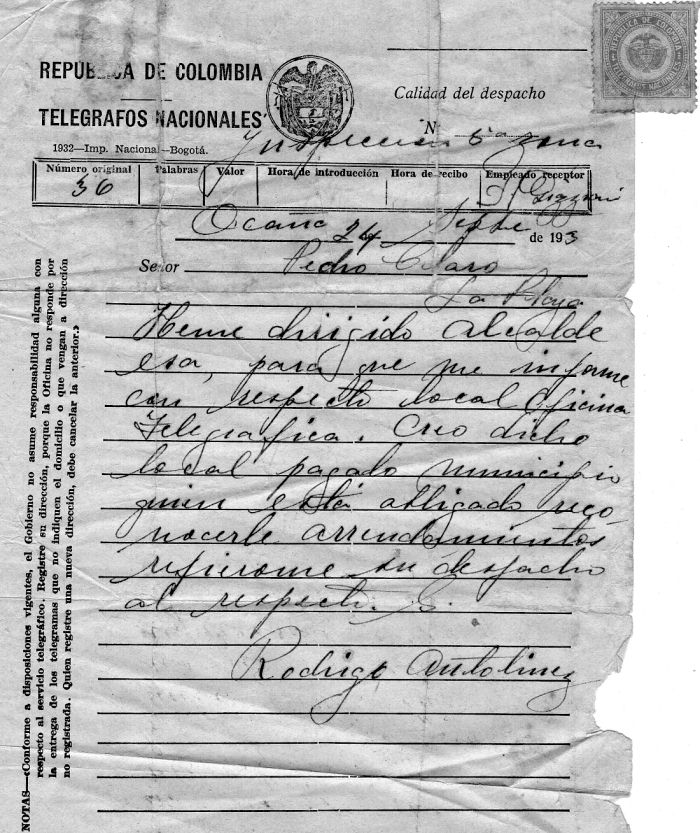 REPUBLICA DE COLOMBIA
TELEGRAFOS NACIONALES
1932—Imp. Nacional—Bogotá.
REPUBLICA DE COLOMBIA
Calidad del despacho
N
Inspeccion 5ª zona
Número original
Palabras
Valor
Hora de introducción
Hora de recibo
Empleado receptor
36
Ocaña 24 de Sepbre de 193
Señor Pedro Claro
La Playa
Heme dirigido alcalde
esa, para que me informe
con respecto local oficina
Telegrafica. Creo dicho
local pagado municipio
quien está obligado reco-
nocerle arrendamientos
refierome su despacho
al respecto. S.
Rodrigo Antolinez
NOTAS—«Conforme a disposiciones vigentes, el Gobierno no asume responsabilidad alguna con
respecto al servicio telegráfico. Registre su dirección, porque la Oficina no responde por
la entrega de los telegramas que no indiquen el domicilio o que vengan a dirección
no registrada. Quien registre una nueva dirección, debe cancelar la anterior.»